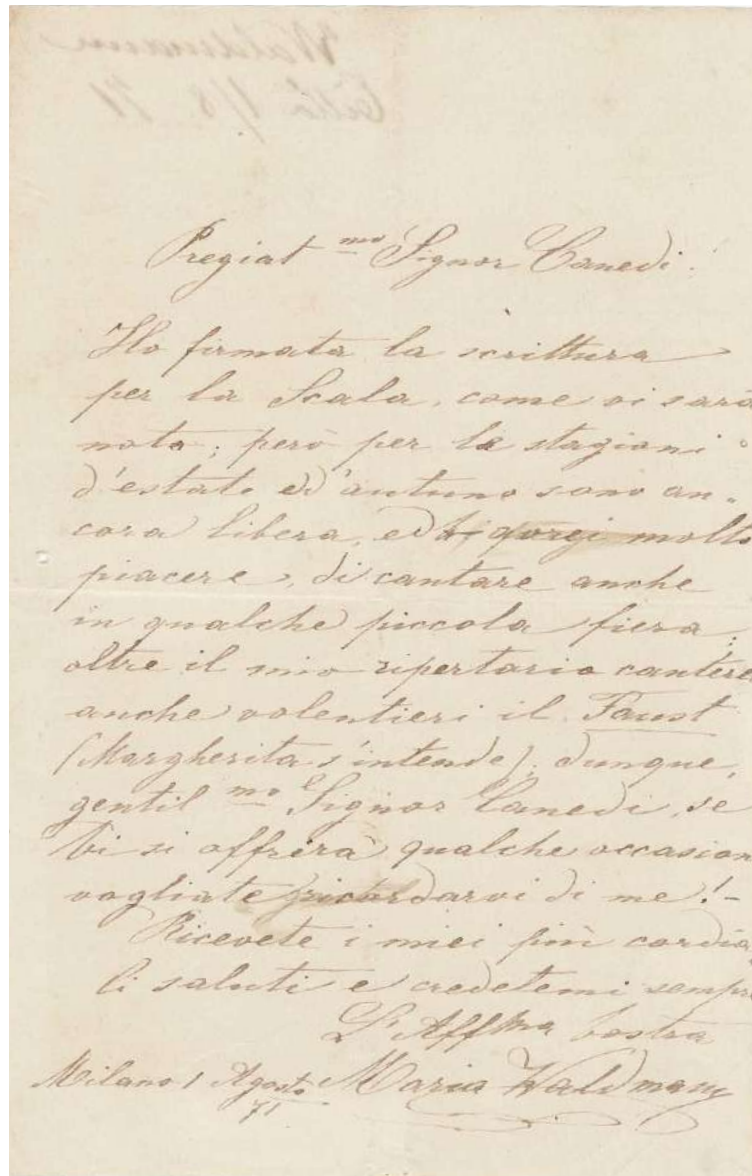 Waldmann
Città 1/8 71
Pregiat mo Signor Canedi.
Ho firmata la scrittura
per la Scala, come vi sarà
noto; però per le stagioni
d'estate ed'autuno sono an=
cora libera, ed molto
piacere, di cantare anche
in qualche piccola fiera;
oltre il mio ripertorio canterei
anche volentieri il Faust
(Margherita s'intende); dunque,
gentil mo Signor Canedi, se
Vi si offrirà qualche occasion
vogliate ricordarvi di me! -
Ricevete i miei più cordia
li saluti e credetemi sempre
L'Aff ma Vostra
Milano 1 Agosto Maria Waldmann
71